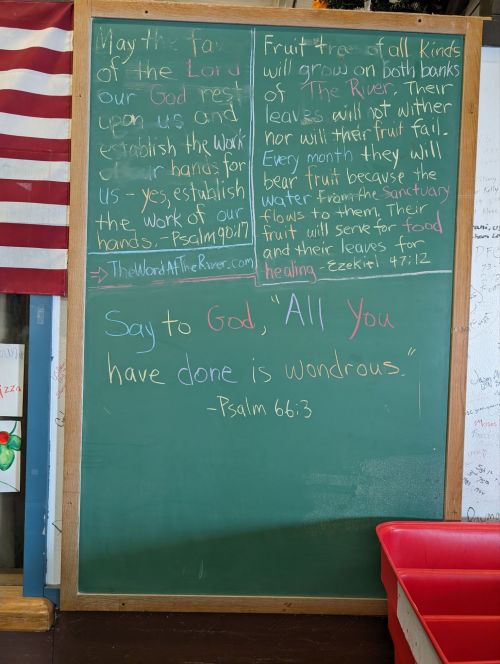 May the fa
of the Lord
our God rest
upon us and
establish the work
of our hands for
us - yes, establish
the work of our
hands. - Psalm 90:17
→ TheWordAtTheRiver.com
Fruit trees of all kinds
will grow on both banks
of The River. Their
leaves will not wither
nor will their fruit fail.
Every month they will
bear fruit because the
water from the Sanctuary
flows to them. Their
fruit will serve for food
and their leaves for
healing - Ezekiel 47:12
Say to God, "All You
have done is wondrous."
-Psalm 66:3
izza